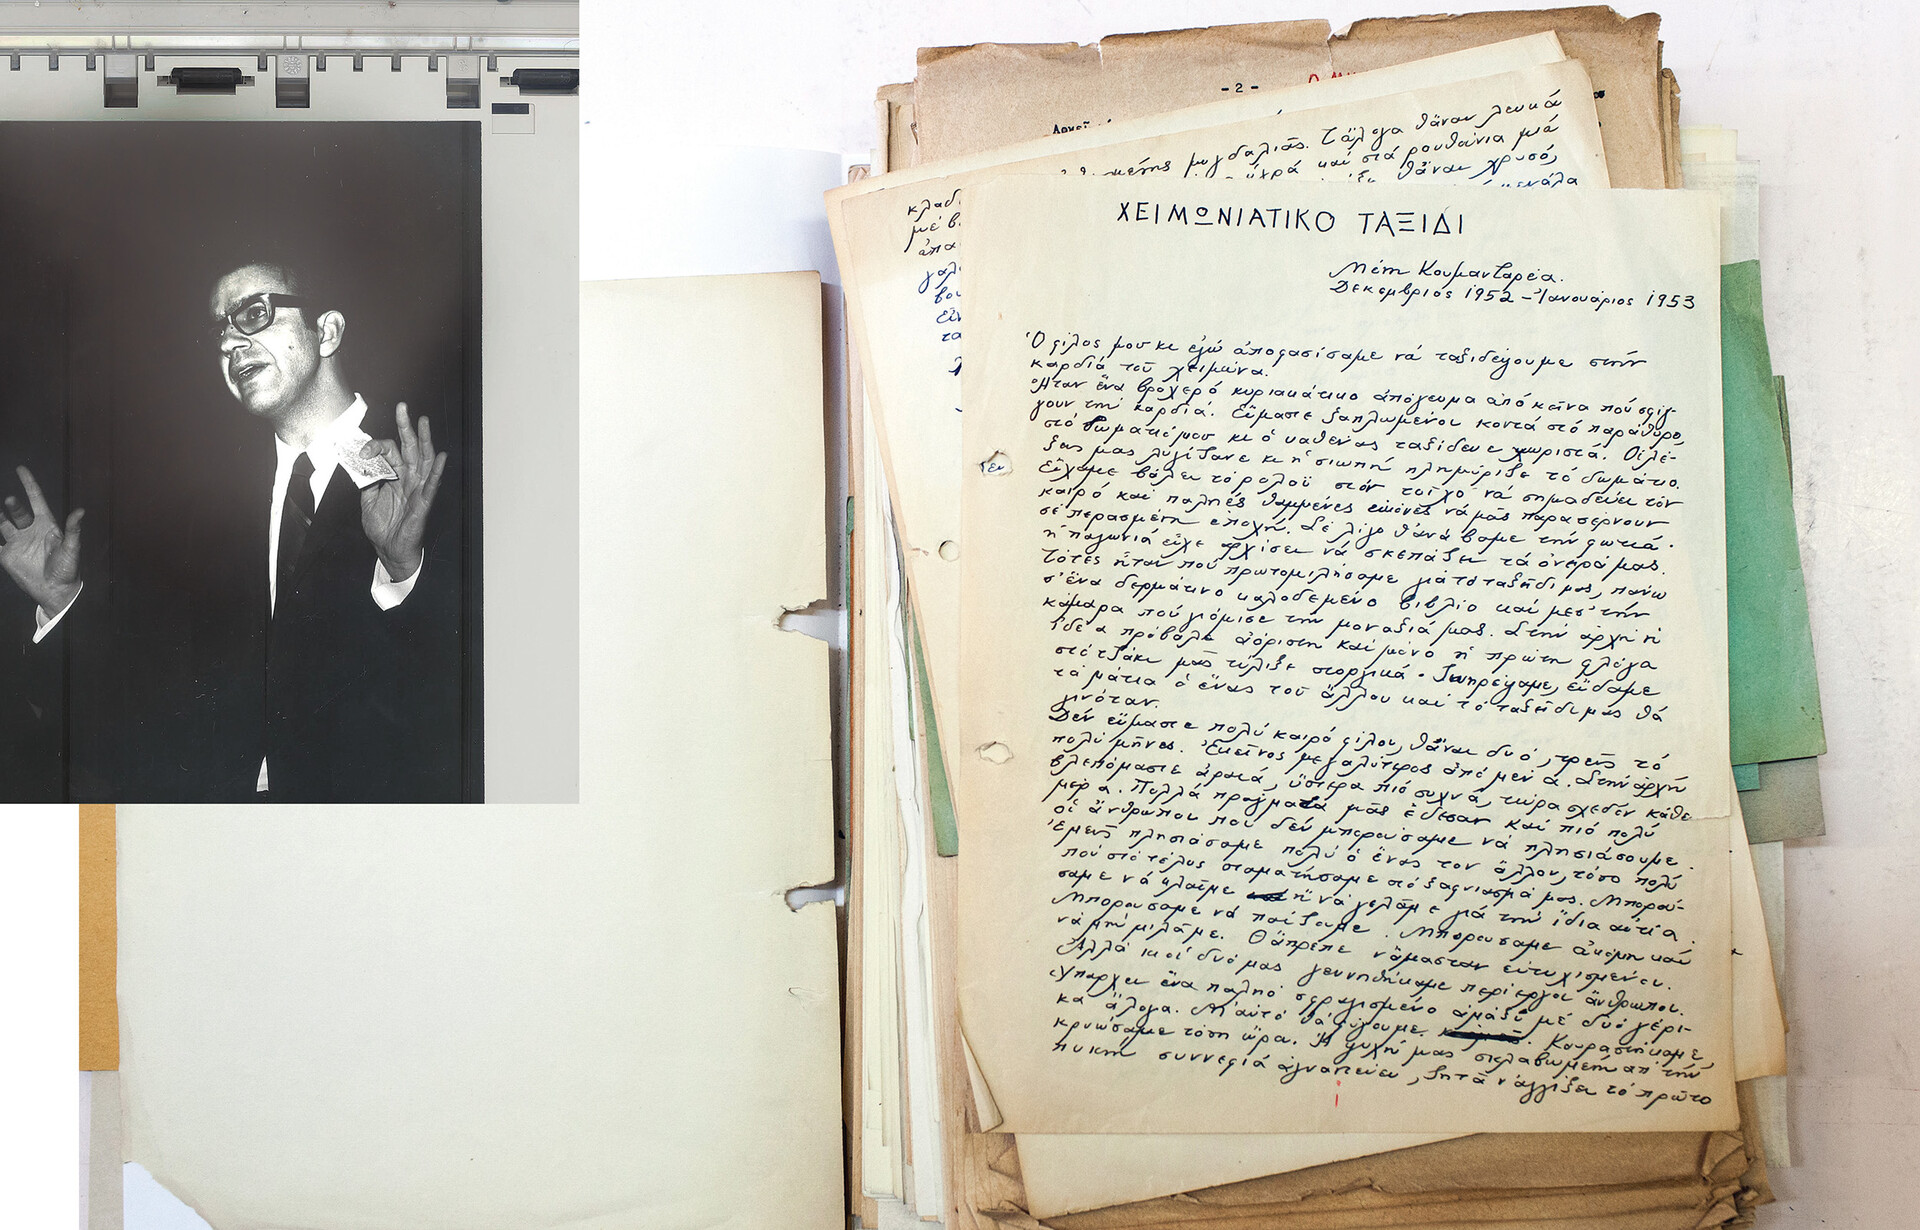 - 2 -
μυγδαλιᾶς. Τἄλογα θἄναι λευκά
καί στά ρουθούνια μιά
θἄναι χρυσό,
κλαδ
μέ β
ἀπα
γαλ
βου
εἶν
τα
ΧΕΙΜΩΝΙΑΤΙΚΟ ΤΑΞΙΔΙ
Μένη Κουμανταρέα.
Δεκέμβριος 1952 - Ἰανουάριος 1953
Ὁ φίλος μου κι ἐγώ ἀποφασίσαμε νά ταξιδέψουμε στήν
καρδιά τοῦ χειμώνα.
Ἦταν ἕνα βροχερό κυριακάτικο ἀπόγευμα ἀπό κεῖνα πού σφίγ-
γουν τήν καρδιά. Εἴμαστε ξαπλωμένοι κοντά στό παράθυρο,
στό δωμάτιό μου κι ὁ καθένας ταξίδευε χωριστά. Οἱ λέ-
ξεις μας λύγιζανε κι ἡ σιωπή πλημύριζε τό δωμάτιο.
Εἴχαμε βάλει τό ρολόϊ στόν τοῖχο νά σημαδεύει τόν
καιρό καί παληές θαμμένες εἰκόνες νά μᾶς παρασέρνουν
σέ περασμένη ἐποχή. Σέ λίγο θἀνάβαμε τήν φωτιά.
ἡ παγωνιά εἶχε ἀρχίσει νά σκεπάζει τά ὄνειρά μας.
Τότες ἦταν πού πρωτομιλήσαμε γιά τό ταξεῖδι μας, πάνω
σ' ἕνα δερμάτινο καλοδεμένο βιβλίο καί μεσ' τήν
κάμαρα πού γιόμισε τήν μοναξιά μας. Στήν ἀρχή ἡ
ἰδέα πρόβαλε ἀόριστη καί μόνο ἡ πρώτη φλόγα
στό τζάκι μᾶς τύλιξε στοργικά. Σωπρέψαμε, εἴδαμε
τά μάτια ὁ ἕνας τοῦ ἄλλου καί τό ταξεῖδι μας θά
γινόταν.
Δέν εἴμαστε πολύ καιρό φίλοι, θἄναι δυό, τρεῖς τό
πολύ μῆνες. Ἐκεῖνος μεγαλύτερος ἀπό μένα. Στήν ἀρχή
βλεπόμαστε ἀραιά, ὕστερα πιό συχνά, τώρα σχεδόν κάθε
μέρα. Πολλά πράγματα μᾶς ἔδεσαν καί πιό πολύ
οἱ ἄνθρωποι πού δέν μπορούσαμε νά πλησιάσουμε.
Ἐμεῖς πλησιάσαμε πολύ ὁ ἕνας τόν ἄλλον, τόσο πολύ
πού στό τέλος σταματήσαμε στό ξαφνιασμά μας. Μπορού-
σαμε νά κλαῖμε ἤ νά γελᾶμε γιά τήν ἴδια αἰτία.
Μπορούσαμε νά παίζουμε. Μπορούσαμε ἀκόμη καί
νά μή μιλᾶμε. Θἄπρεπε νἄμασταν εὐτυχισμένοι.
Ἀλλά κι οἱ δυό μας γεννηθήκαμε περίεργοι ἄνθρωποι.
Ὑπάρχει ἕνα παληό σφραγισμένο ἁμάξι μέ δυό γέρι-
κα ἄλογα. Μ' αὐτό θά φύγουμε. Κουραστήκαμε,
κρυώσαμε τόση ὥρα. Ἡ ψυχή μας σκλαβωμένη ἀπ' τήν
πυκνή συννεφιά ἀγναντεύει, ζητᾶ ν' ἀγγίξει τό πρῶτο